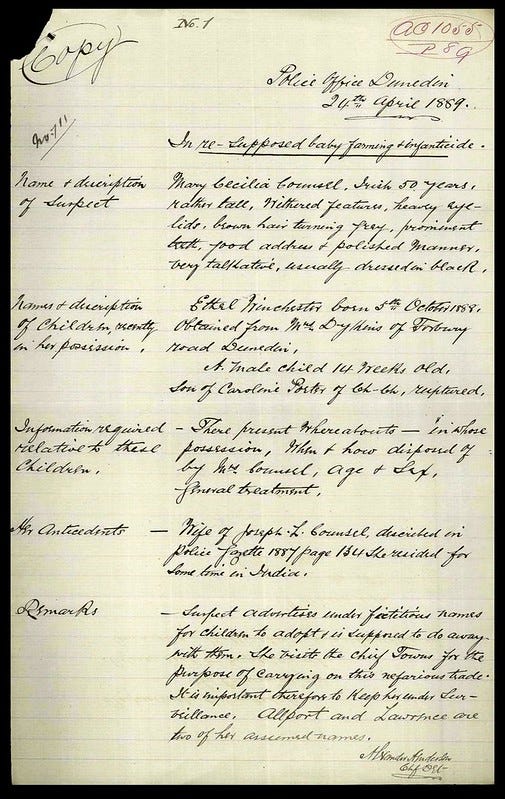 No. 1
Copy
AO 1055
P 89
Police Office Dunedin
24th April 1889.
No. 7/11
In re - Supposed baby farming & infanticide.
Name & discription of Suspect
Mary Cecilia Counsel, Irish 50 years,
rather tall, Withered features, heavy eye-
lids, brown hair turning grey, prominent
teeth, good address & polished Manner,
very talkative, usually dressed in black.
Names & discription of Children, recently in her possession.
Ethel Winchester born 5th October 1888,
Obtained from Mrs Dykins of Forbury
road Dunedin,
A Male child 14 Weeks old,
Son of Caroline Porter of Ch-Ch, ruptured.
Information required relative to these Children.
- There present Whereabouts - in whose
possession, When & how disposed of
by Mrs Counsel, Age & Sex,
General treatment.
Her Antecedents
- Wife of Joseph L. Counsel, discribed in
Police Gazette 1887 page 134 She resided for
Some time in India.
Remarks
- Suspect advertises under fictitious names
for children to adopt & is supposed to do away
with them. She visits the chief Towns for the
purpose of carrying on this nefarious trade.
It is important therefore to Keep her under Sur-
veillance. Allport and Lawrence are
two of her assumed names.
Chf Det